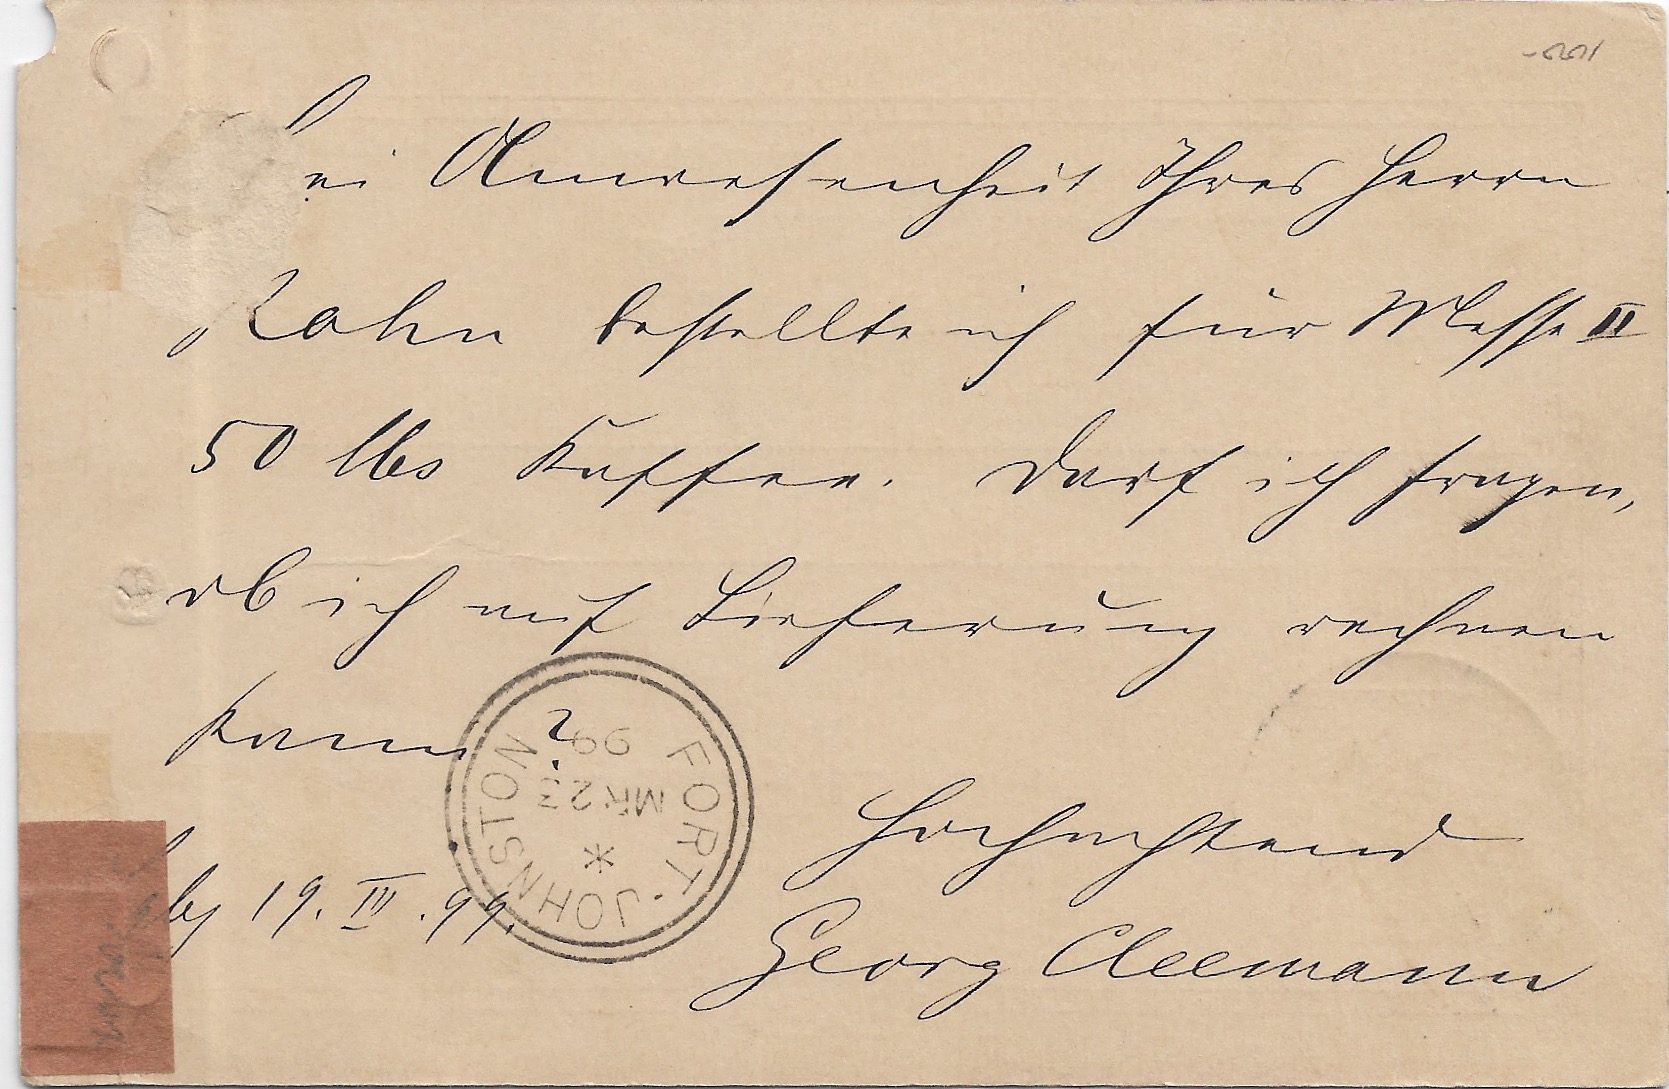 Bei Anwesenheit Ihres Herrn
Kahn bestellte ich für Messe II
50 lbs Kaffee. Darf ich fragen,
ob ich auf Lieferung rechnen
kann?
Hochachtend
by 19. III. 99.
Georg Cleemann
FORT-JOHNSTON
MR 23
99